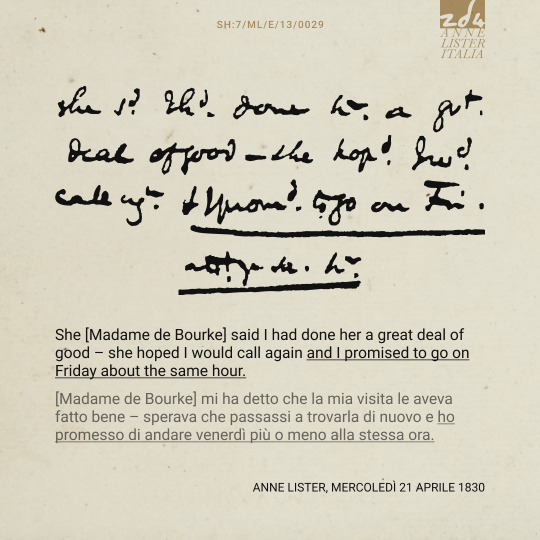 SH:7/ML/E/13/0029
zd4
ANNE
LISTER
ITALIA
she sd. I hd. done hr. a grt.
deal of good – she hopd. I wd.
call agn. & I promd. to go on Fri.
abt. ye sa. hr.
She [Madame de Bourke] said I had done her a great deal of
good – she hoped I would call again and I promised to go on
Friday about the same hour.
[Madame de Bourke] mi ha detto che la mia visita le aveva
fatto bene – sperava che passassi a trovarla di nuovo e ho
promesso di andare venerdì più o meno alla stessa ora.
ANNE LISTER, MERCOLEDÌ 21 APRILE 1830